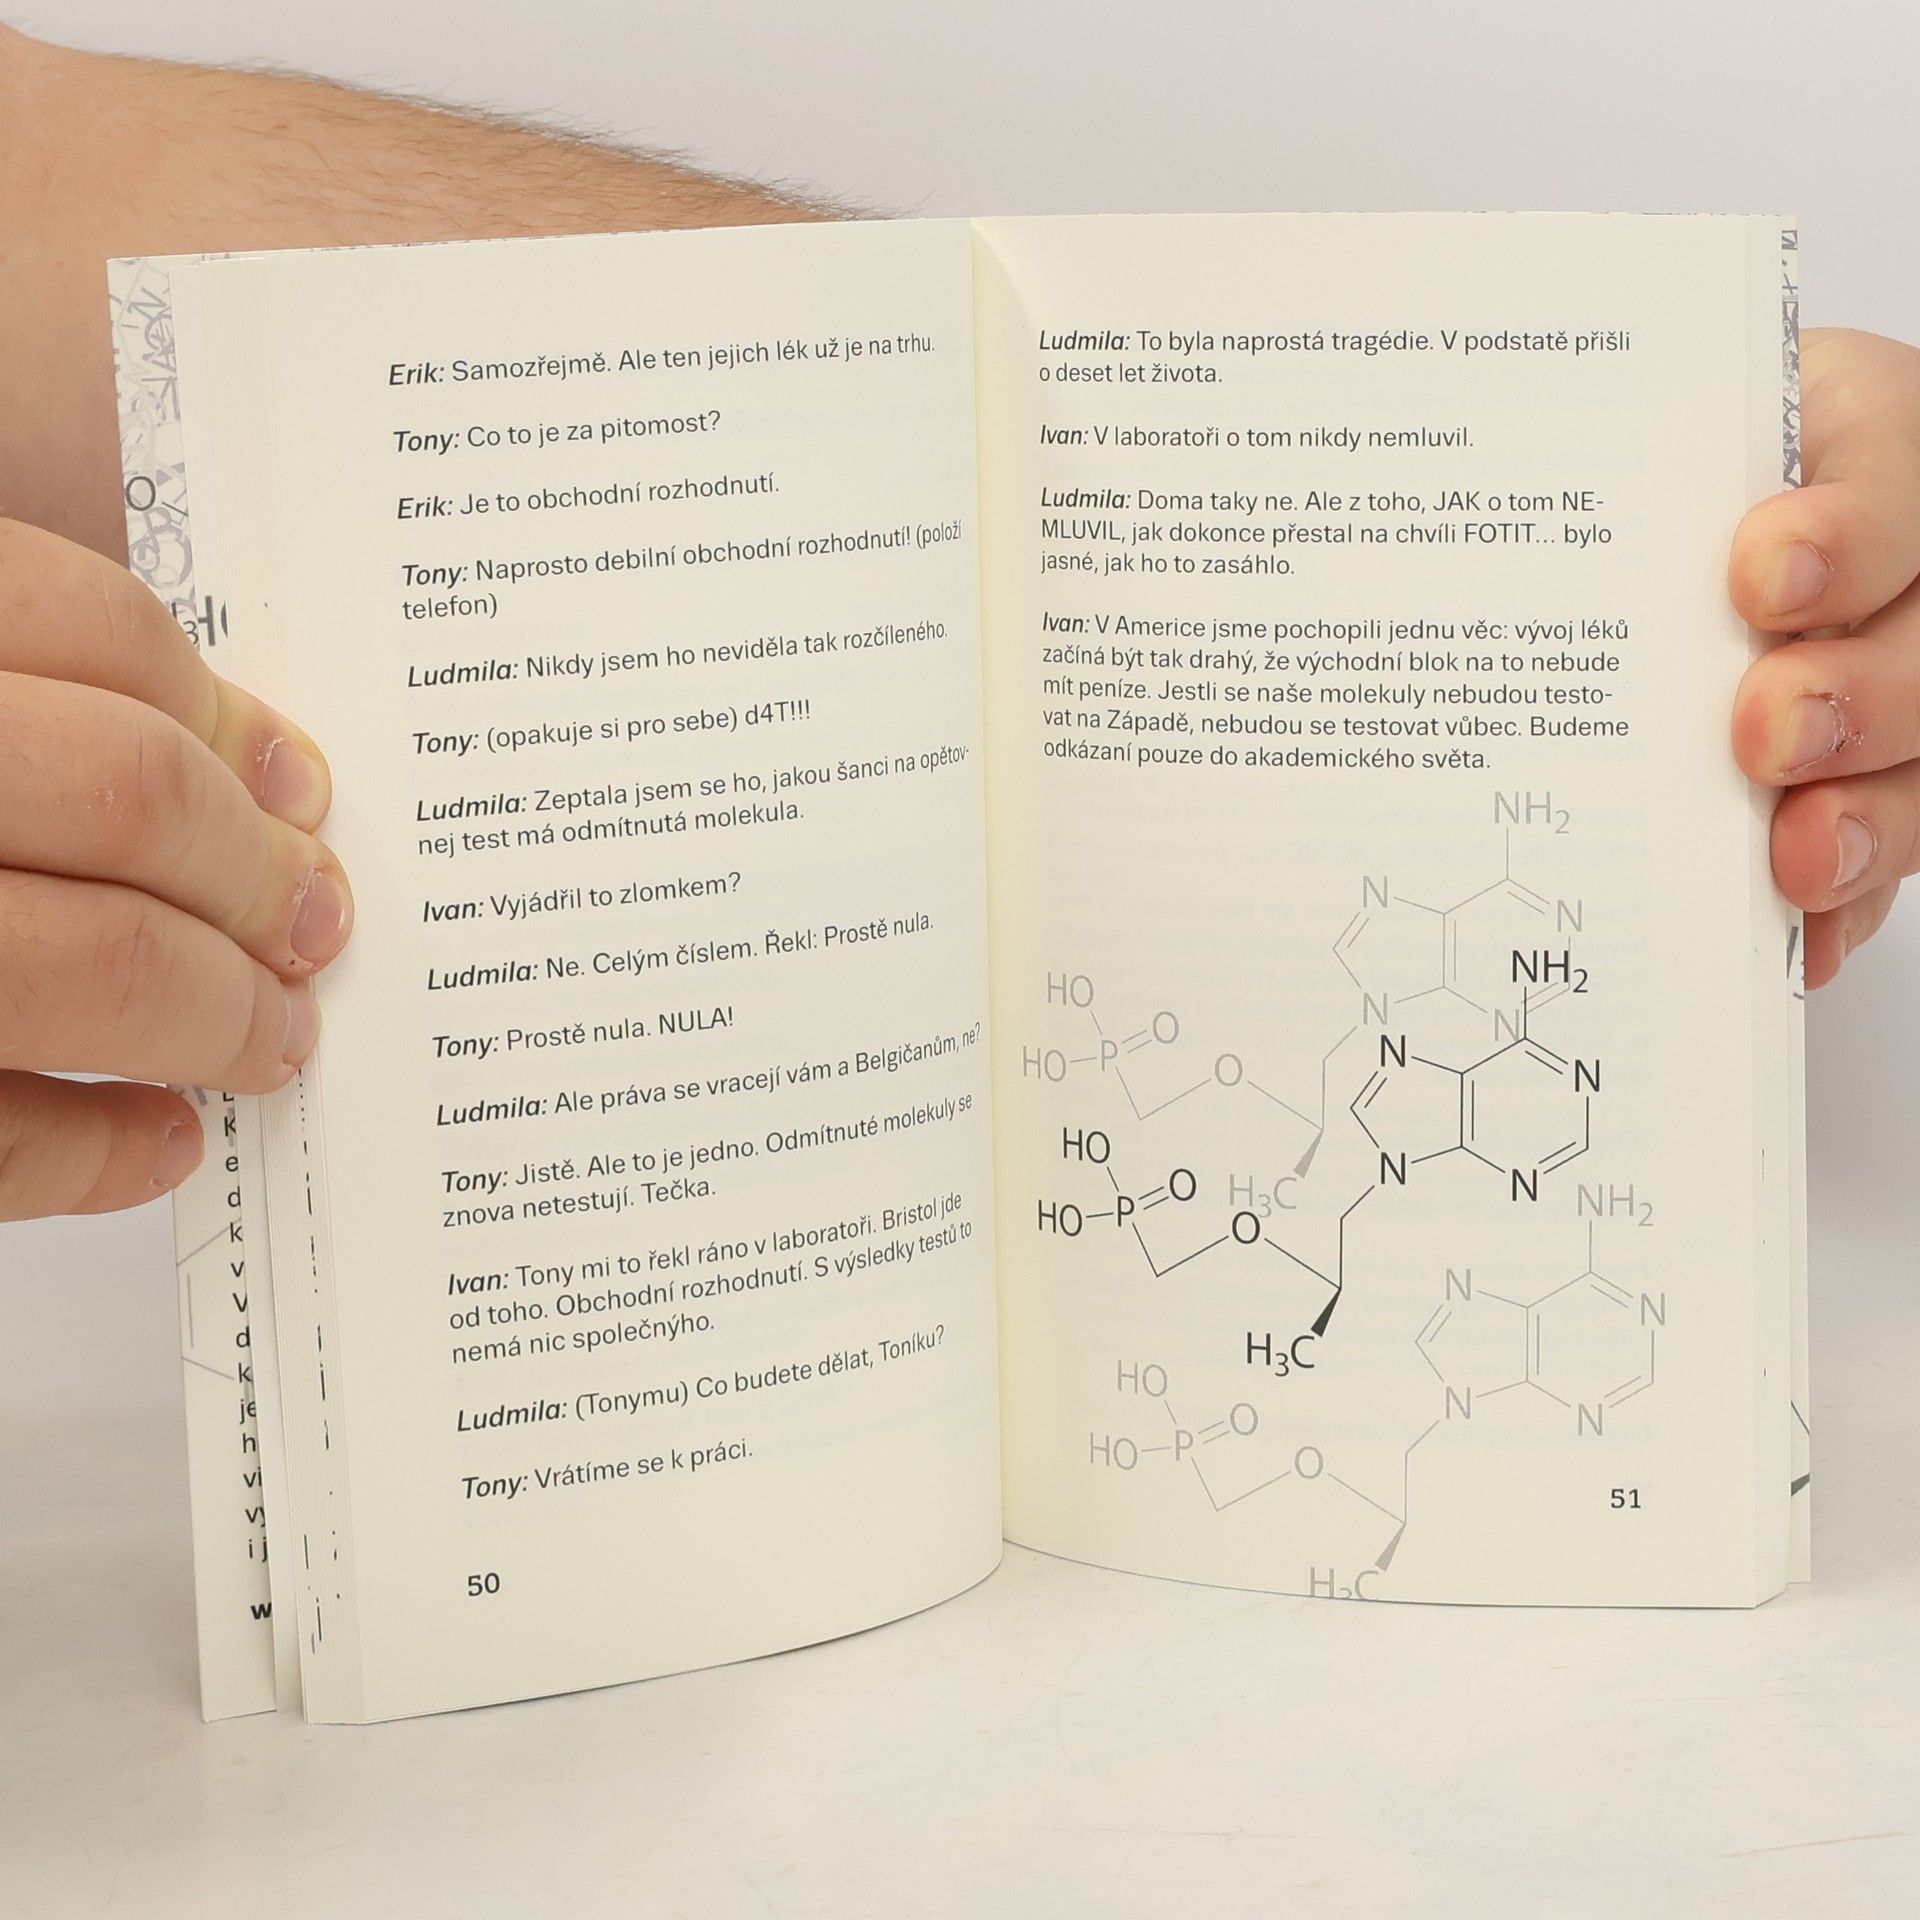 Erik: Samozřejmě. Ale ten jejich lék už je na trhu.
Tony: Co to je za pitomost?
Erik: Je to obchodní rozhodnutí.
Tony: Naprosto debilní obchodní rozhodnutí! (položí
telefon)
Ludmila: Nikdy jsem ho neviděla tak rozčíleného.
Tony: (opakuje si pro sebe) d4T!!!
Ludmila: Zeptala jsem se ho, jakou šanci na opětov-
nej test má odmítnutá molekula.
Ivan: Vyjádřil to zlomkem?
Ludmila: Ne. Celým číslem. Řekl: Prostě nula.
Tony: Prostě nula. NULA!
Ludmila: Ale práva se vracejí vám a Belgičanům, ne?
Tony: Jistě. Ale to je jedno. Odmítnuté molekuly se
znova netestují. Tečka.
Ivan: Tony mi to řekl ráno v laboratoři. Bristol jde
od toho. Obchodní rozhodnutí. S výsledky testů to
nemá nic společnýho.
Ludmila: (Tonymu) Co budete dělat, Toníku?
Tony: Vrátíme se k práci.
50
Ludmila: To byla naprostá tragédie. V podstatě přišli
o deset let života.
Ivan: V laboratoři o tom nikdy nemluvil.
Ludmila: Doma taky ne. Ale z toho, JAK o tom NE-
MLUVIL, jak dokonce přestal na chvíli FOTIT... bylo
jasné, jak ho to zasáhlo.
Ivan: V Americe jsme pochopili jednu věc: vývoj léků
začíná být tak drahý, že východní blok na to nebude
mít peníze. Jestli se naše molekuly nebudou testo-
vat na Západě, nebudou se testovat vůbec. Budeme
odkázaní pouze do akademického světa.
NH2
N
N
N
N
HO
O
HO P
O
H3C
NH2
N
N
N
N
HO
O
HO P
O
H3C
NH2
N
N
N
N
HO
O
HO P
O
H3C
51